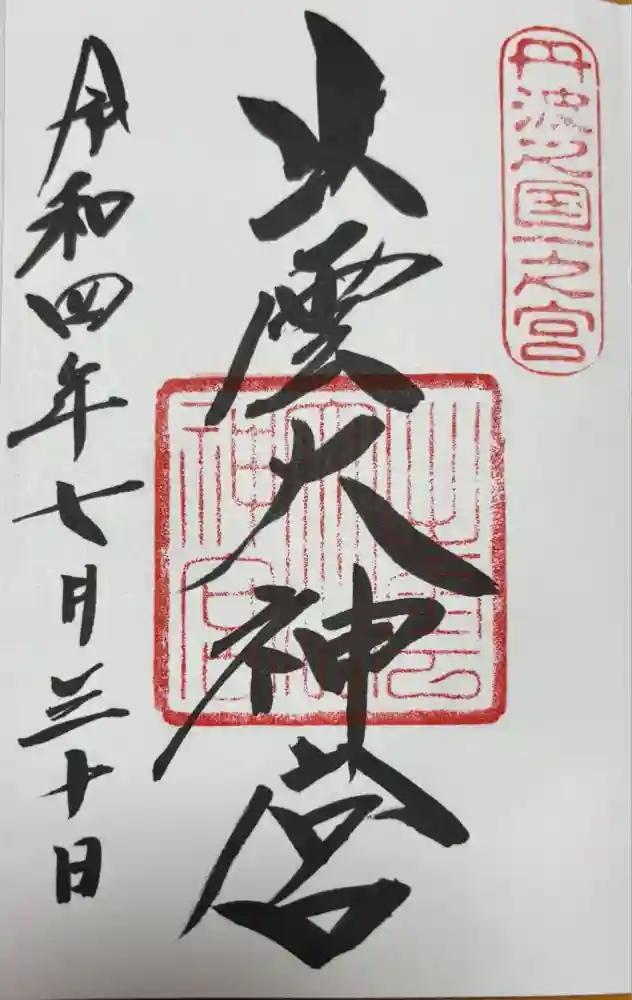 丹波之国一之宮
出雲大神宮
出雲大神宮
令和四年七月三十日